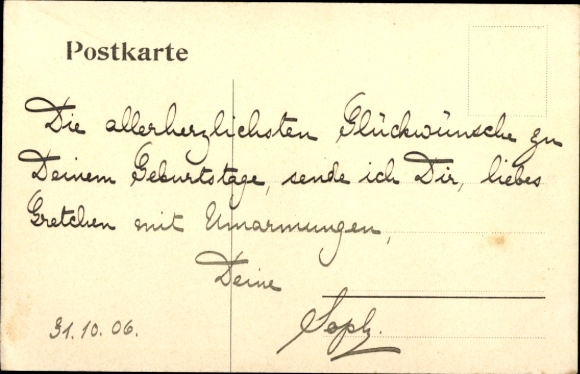 Postkarte
Die allerherzlichsten Glückwünsche zu
Deinem Geburtstage, sende ich Dir, liebes
Gretchen mit Umarmungen,
Deine
Soph.
31.10.06.